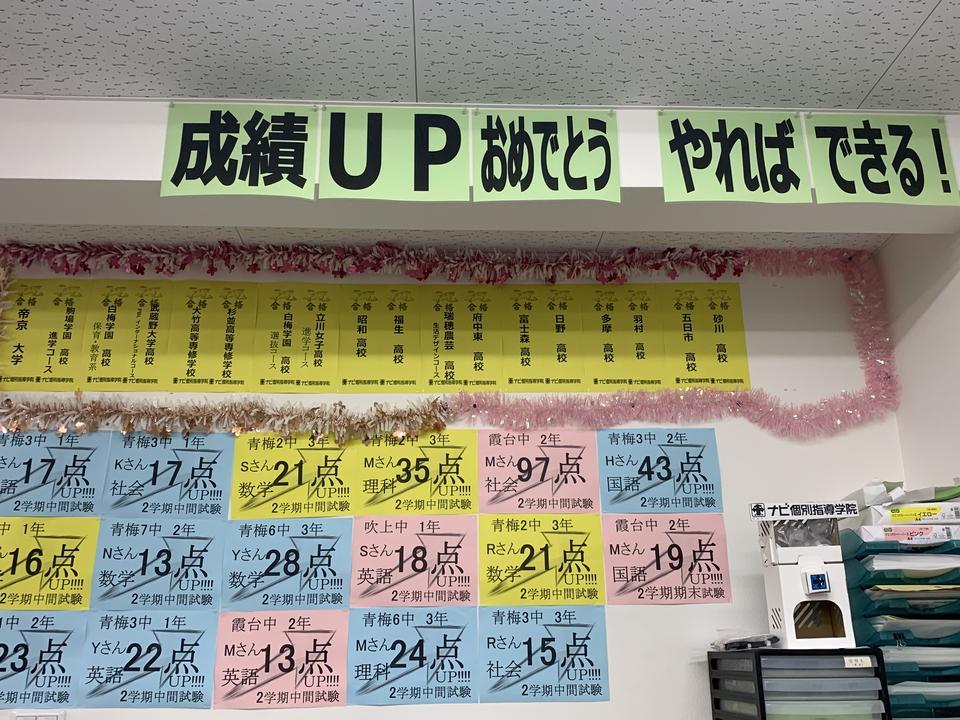 成績UPおめでとう やればできる!
合格 帝京 大学
合格 駒場学園 高校 進学コース
合格 白梅学園 高校 保育・教育系
合格 武蔵野大学高校
合格 大竹高等専修学校
合格 杉並高等専修学校
合格 白梅学園 高校 選抜コース
合格 立川女子高校 進学コース
合格 昭和 高校
合格 福生 高校
瑞穂農芸 高校 生活デザインコース
合格 府中東 高校
合格 富士森 高校
合格 日野 高校
合格 多摩 高校
合格 羽村 高校
合格 五日市 高校
合格 砂川 高校
ナビ個別指導学院
青梅3中 1年
さん 17点UP!!!!
2学期中間試験
青梅3中 1年
Kさん 社会 17点UP!!!!
2学期中間試験
青梅2中 3年
Sさん 数学 21点UP!!!!
2学期中間試験
青梅2中 3年
Mさん 理科 35点UP!!!!
2学期中間試験
霞台中 2年
Mさん 社会 97点UP!!!!
2学期中間試験
青梅3中 2年
Hさん 国語 43点UP!!!!
2学期中間試験
中 1年
16点UP!!!!
2学期中間試験
青梅7中 2年
Nさん 数学 13点UP!!!!
2学期中間試験
青梅6中 3年
Yさん 数学 28点UP!!!!
2学期中間試験
吹上中 1年
Sさん 英語 18点UP!!!!
2学期中間試験
青梅2中 3年
Rさん 数学 21点UP!!!!
2学期中間試験
霞台中 2年
Mさん 国語 19点UP!!!!
2学期期末試験
中 2年
23点UP!!!!
2学期中間試験
青梅3中 1年
Yさん 英語 22点UP!!!!
2学期中間試験
霞台中 2年
Mさん 英語 13点UP!!!!
2学期中間試験
青梅6中 3年
Mさん 理科 24点UP!!!!
2学期中間試験
青梅3中 3年
Rさん 社会 15点UP!!!!
2学期中間試験
ナビ個別指導学院
イエロー
ピンク